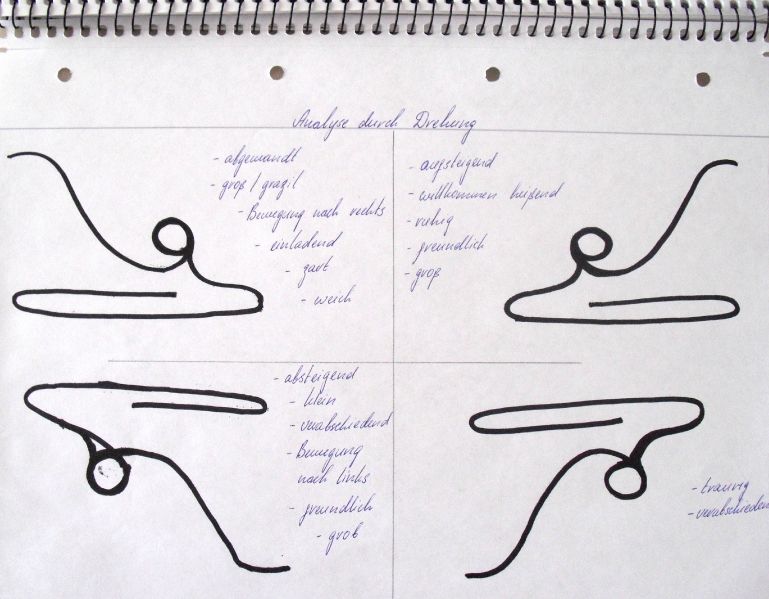 Analyse durch Drehung
- abgewandt
- groß / grazil
- Bewegung nach rechts
- einladend
- zart
- weich
- aufsteigend
- willkommen heißend
- ruhig
- freundlich
- groß
- absteigend
- klein
- verabschiedend
- Bewegung
nach links
- freundlich
- grob
- traurig
- verabschieden